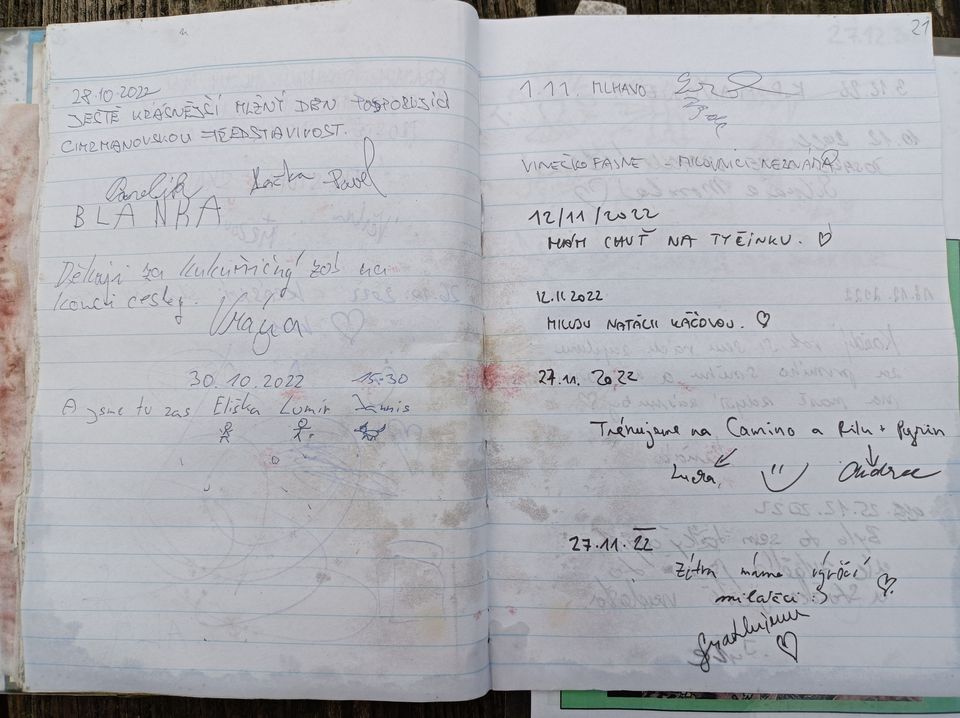 28.10.2022
JEŠTĚ KRÁSNĚJŠÍ MLŽNÝ DEN PODPORUJÍCÍ
CIMRMANOVSKOU PŘEDSTAVIVOST.
Kačka Pavel
BLANKA
Děkuji za kukuřičný zob na
konci cesty.
Vráťa
30.10.2022 15:30
A jsme tu zas Eliška Lumír Jannis
21
1.11. MLHAVO
VINEČKO FAJNE - MILOVNICI NEZNÁMÁ
12/11/2022
MÁM CHUŤ NA TYČINKU. ♡
12.11.2022
MILUJU NATÁLII KÁČOVOU. ♡
27.11.2022
Trénujeme na Camino a Rilu + Pyrin
Lucka Ondra
27.11.22
Zítra máme výročí
miláčci :) ♡
Gratulujeme
♡